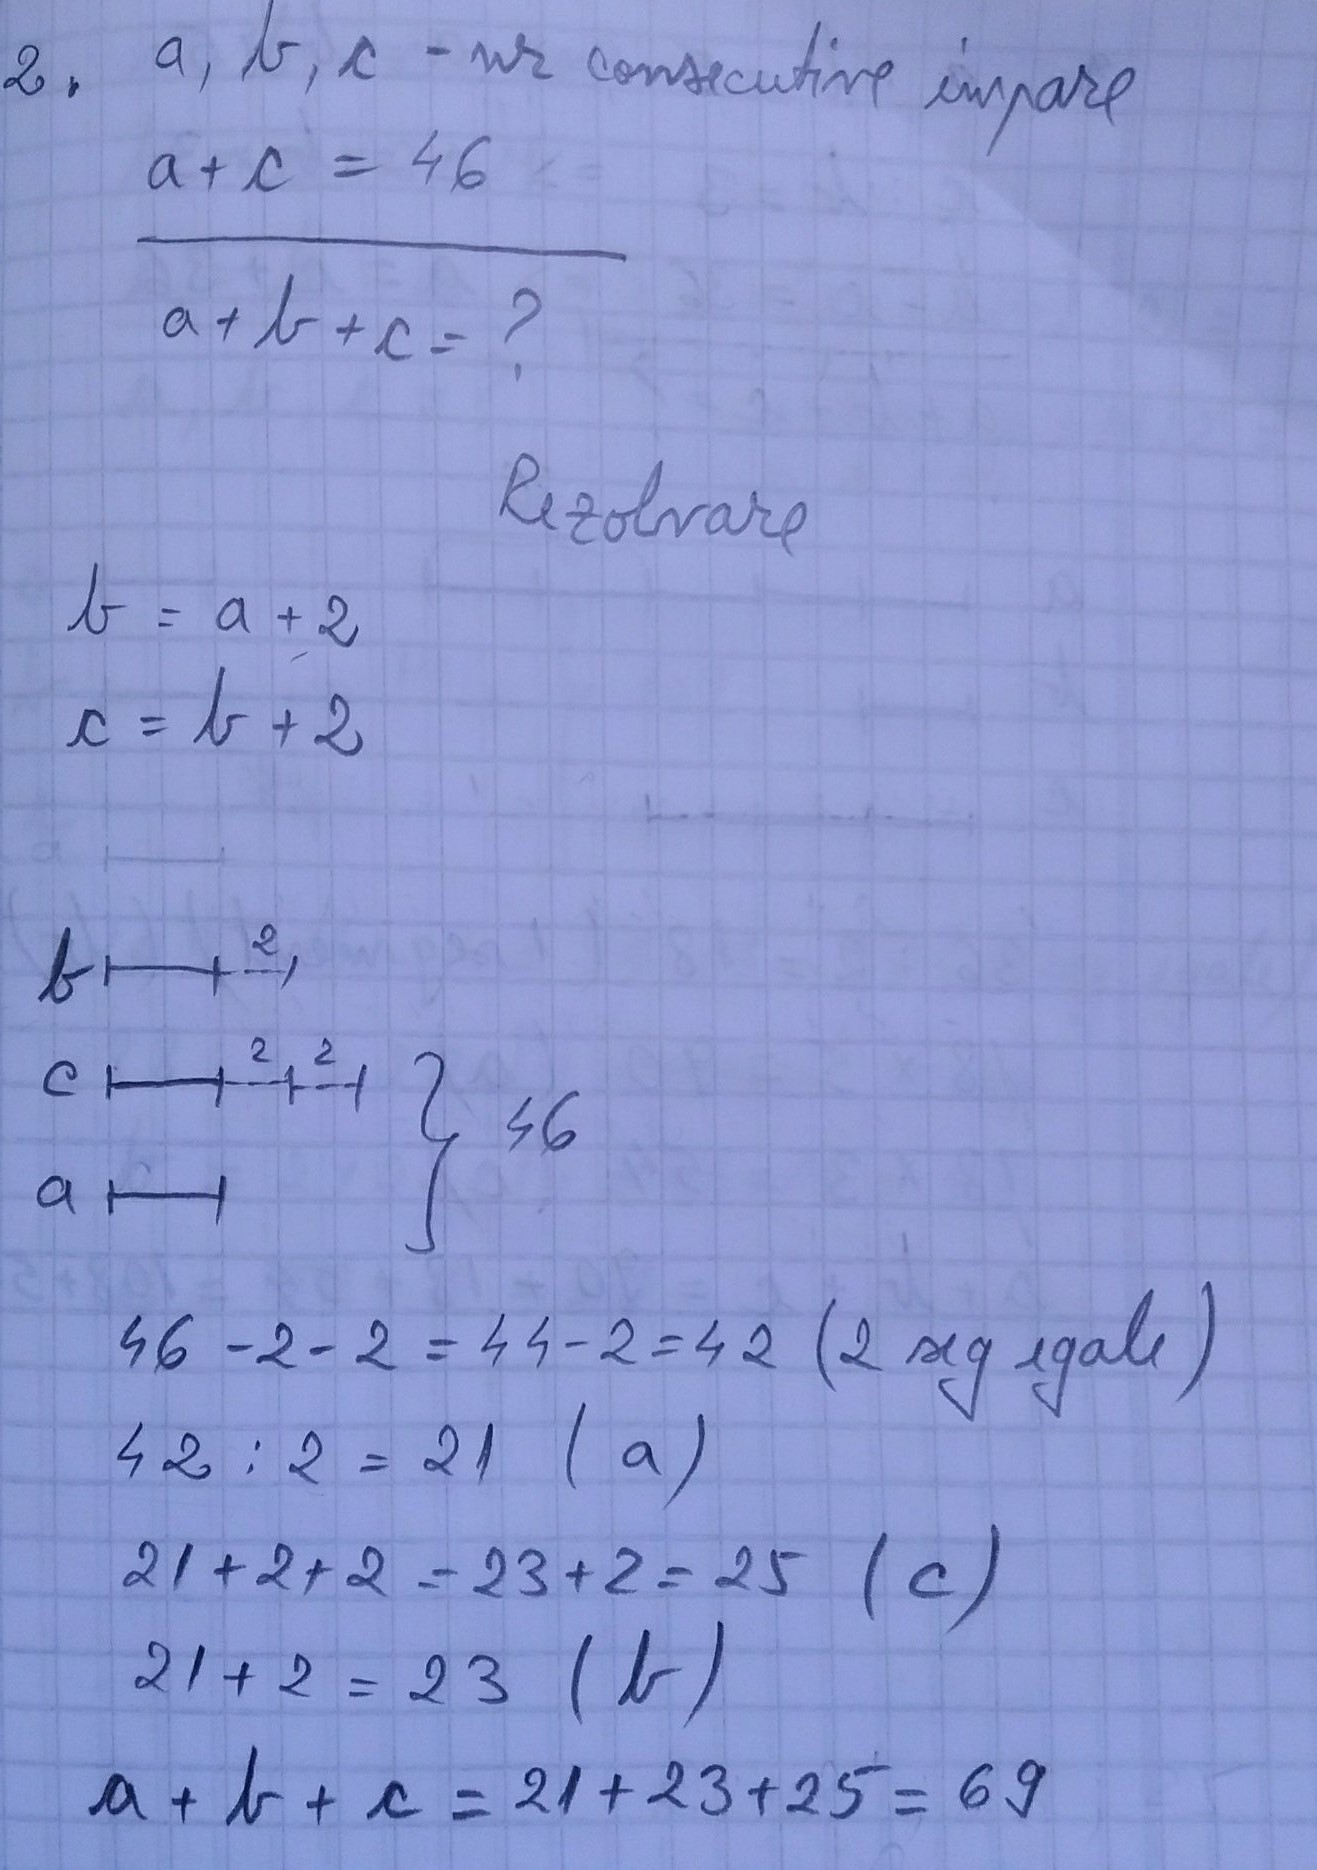 2. a, b, c - nr consecutive impare
a + c = 46
a + b + c = ?
Rezolvare
b = a + 2
c = b + 2
b 2
c 2 2
46
a
46 - 2 - 2 = 44 - 2 = 42 (2 seg egale)
42 : 2 = 21 (a)
21 + 2 + 2 = 23 + 2 = 25 (c)
21 + 2 = 23 (b)
a + b + c = 21 + 23 + 25 = 69